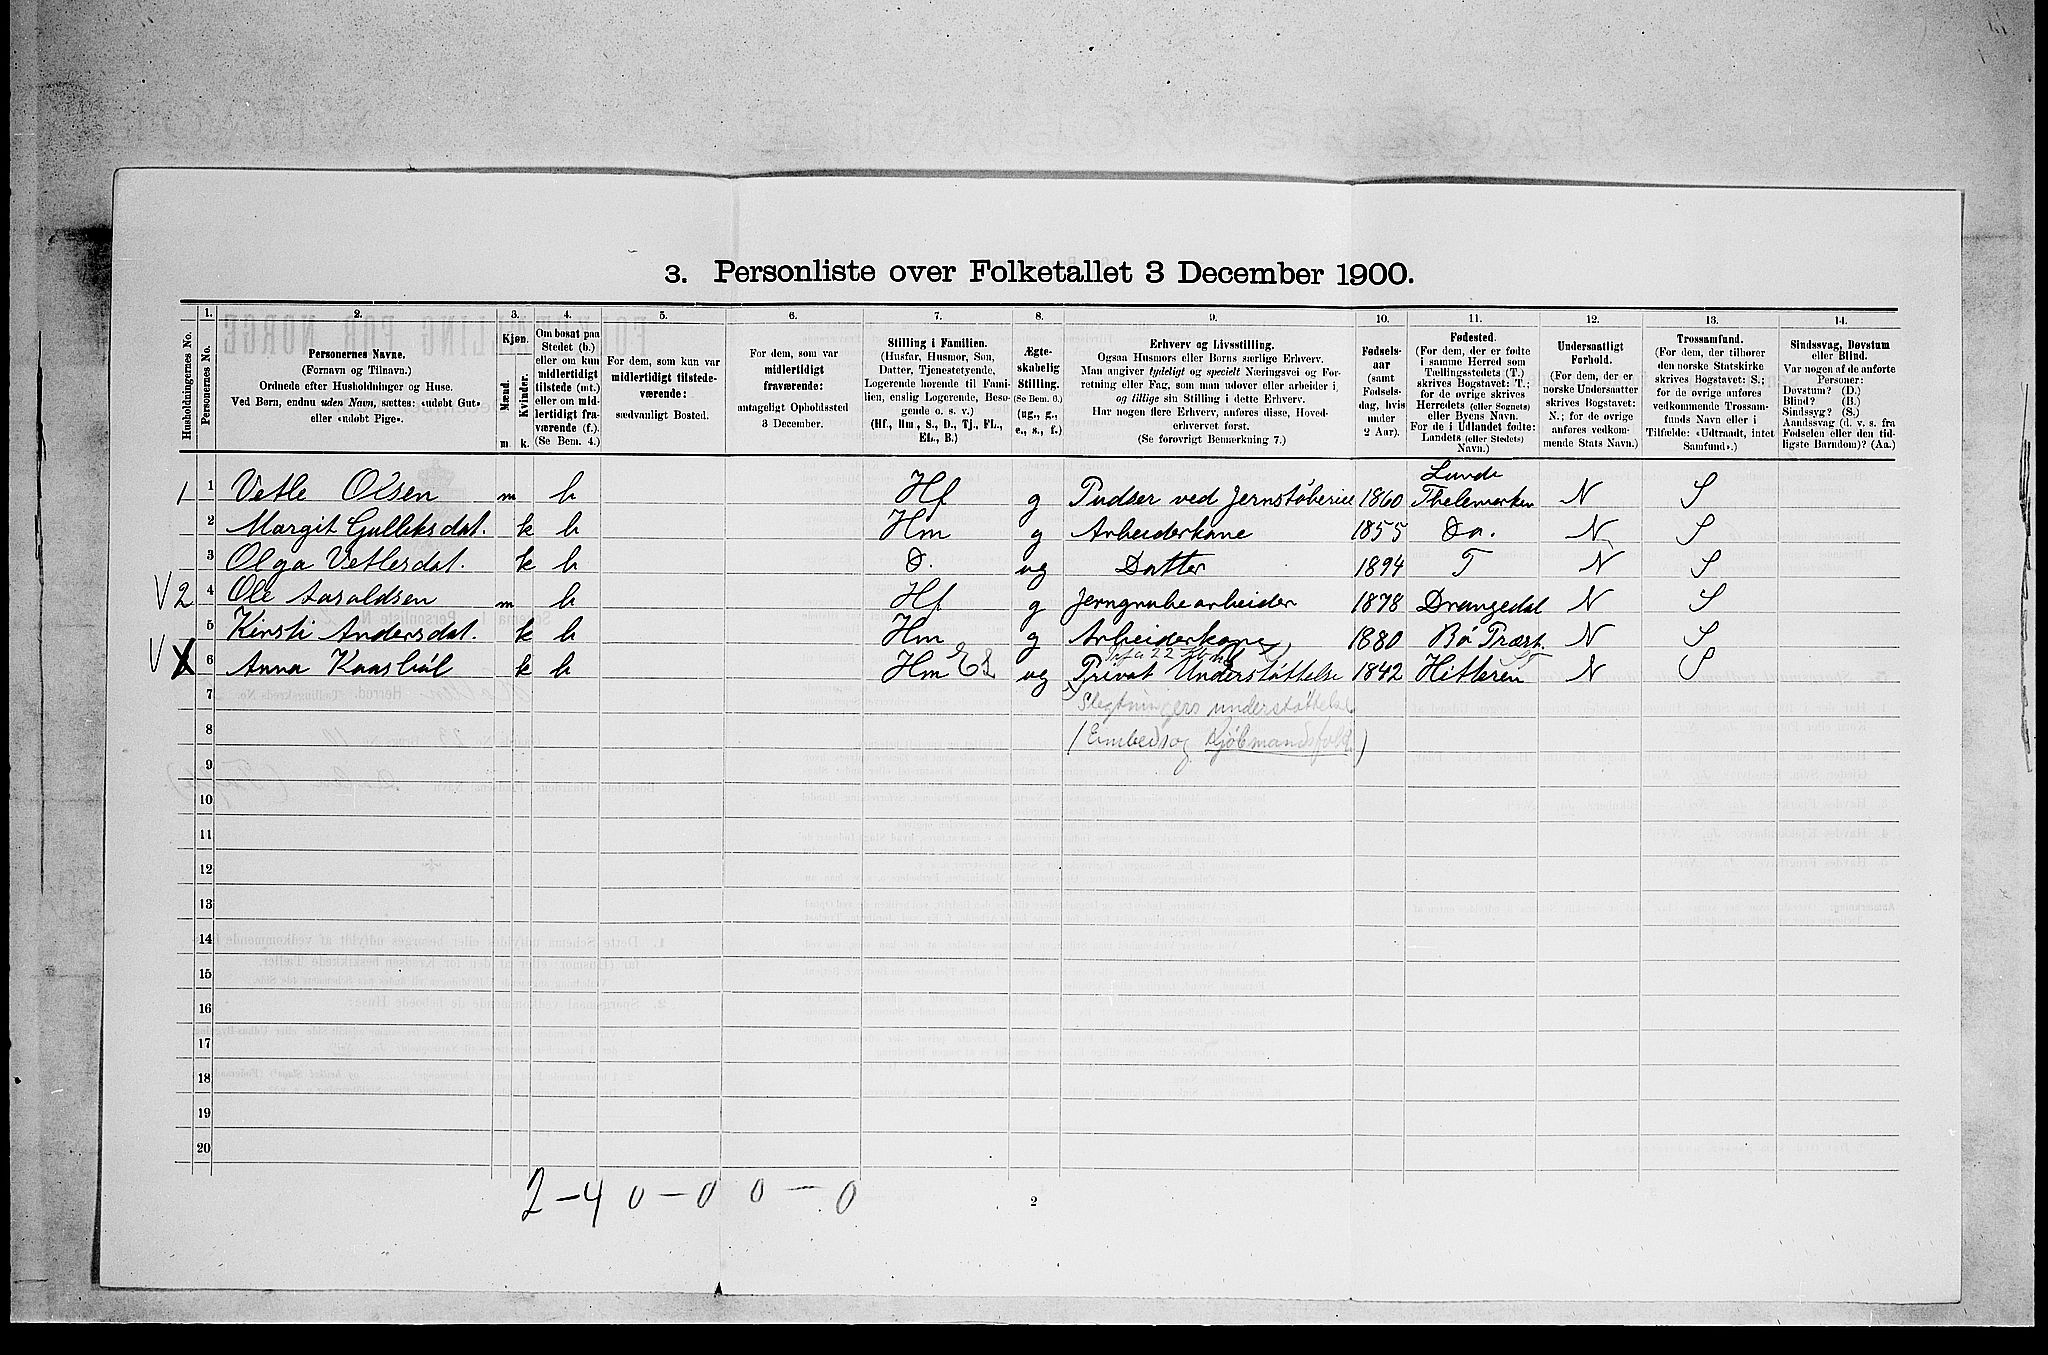 3. Personliste over Folketallet 3 December 1900.
Husholdningernes No.
1.
Personernes No.
2.
Personernes Navne.
(Fornavn og Tilnavn.)
Ordnede efter Husholdninger og Huse.
Ved Børn, endnu uden Navn, sættes: «udøbt Gut»
eller «udøbt Pige».
3.
Kjøn.
Mænd.
Kvinder.
m.
k.
4.
Om bosat paa
Stedet (b.)
eller om kun
midlertidigt
tilstede (mt.)
eller om mid-
lertidigt fra-
værende (f.).
(Se Bem. 4.)
5.
For dem, som kun var
midlertidigt tilstede-
værende:
sædvanligt Bosted.
6.
For dem, som var
midlertidigt
fraværende:
antageligt Opholdssted
3 December.
7.
Stilling i Familien.
(Husfar, Husmor, Søn,
Datter, Tjenestetyende,
Logerende hørende til Fami-
lien, enslig Logerende, Besø-
gende o. s. v.)
(Hf., Hm., S., D., Tj., FL.,
EL., B.)
8.
Ægte-
skabelig
Stilling.
(Se Bem. 6.)
(ug., g.,
e., s., f.)
9.
Erhverv og Livsstilling.
Ogsaa Husmors eller Børns særlige Erhverv.
Man angiver tydeligt og specielt Næringsvei og For-
retning eller Fag, som man udøver eller arbeider i,
og tillige sin Stilling i dette Erhverv.
Har nogen flere Erhverv, anføres disse, Hoved-
erhvervet først.
(Se forøvrigt Bemærkning 7.)
10.
Fødsels-
aar
(samt
Fødsels-
dag, hvis
under
2 Aar).
11.
Fødested.
(For dem, der er fødte
i samme Herred som
Tællingsstedets (T.)
skrives Bogstavet: T.;
for de øvrige skrives
Herredets (eller Sognets)
eller Byens Navn.
For de i Udlandet fødte:
Landets (eller Stedets)
Navn.)
12.
Undersaatligt
Forhold.
(For dem, der er
norske Undersaatter
skrives Bogstavet:
N.; for de øvrige
anføres vedkom-
mende Stats Navn.)
13.
Trossamfund.
(For dem, der tilhører
den norske Statskirke
skrives Bogstavet: S.;
for de øvrige anføres
vedkommende Trossam-
funds Navn eller i
Tilfælde: «Udtraadt, intet
Samfund».)
14.
Sindssvag, Døvstum
eller Blind.
Var nogen af de anførte
Personer:
Døvstum? (D.)
Blind? (B.)
Sindssyg? (S.)
Aandssvag (d. v. s. fra
Fødselen eller den tid-
ligste Barndom)? (Aa.)
Lunde
1 1 Vetle Olsen m b Hf g Pudser ved Jernstøberiet 1860 Thelemarken N S
2 Margit Gulleksdat. k b Hm g Arbeiderkone 1855 Do. N S
3 Olga Vetlesdat. k b D. ug Datter 1894 T N S
V 2 4 Ole Aaraldsen m b Hf g Jerngrubearbeider 1878 Drangedal N S
5 Kirsti Andersdat. k b Hm g Arbeiderkone 1880 Bø Præst. N S
V 6 Anna Kaasbøl k b Hm EL ug Privat Understøttelse 1842 Hitteren ST N S
7 Slegtningers understøttelse
8 (Embeds og Kjøbmandsfolk.)
9
10
11
12
13
14
15
16
17
18
19
20
2 – 4 0 – 0 0 – 0
2